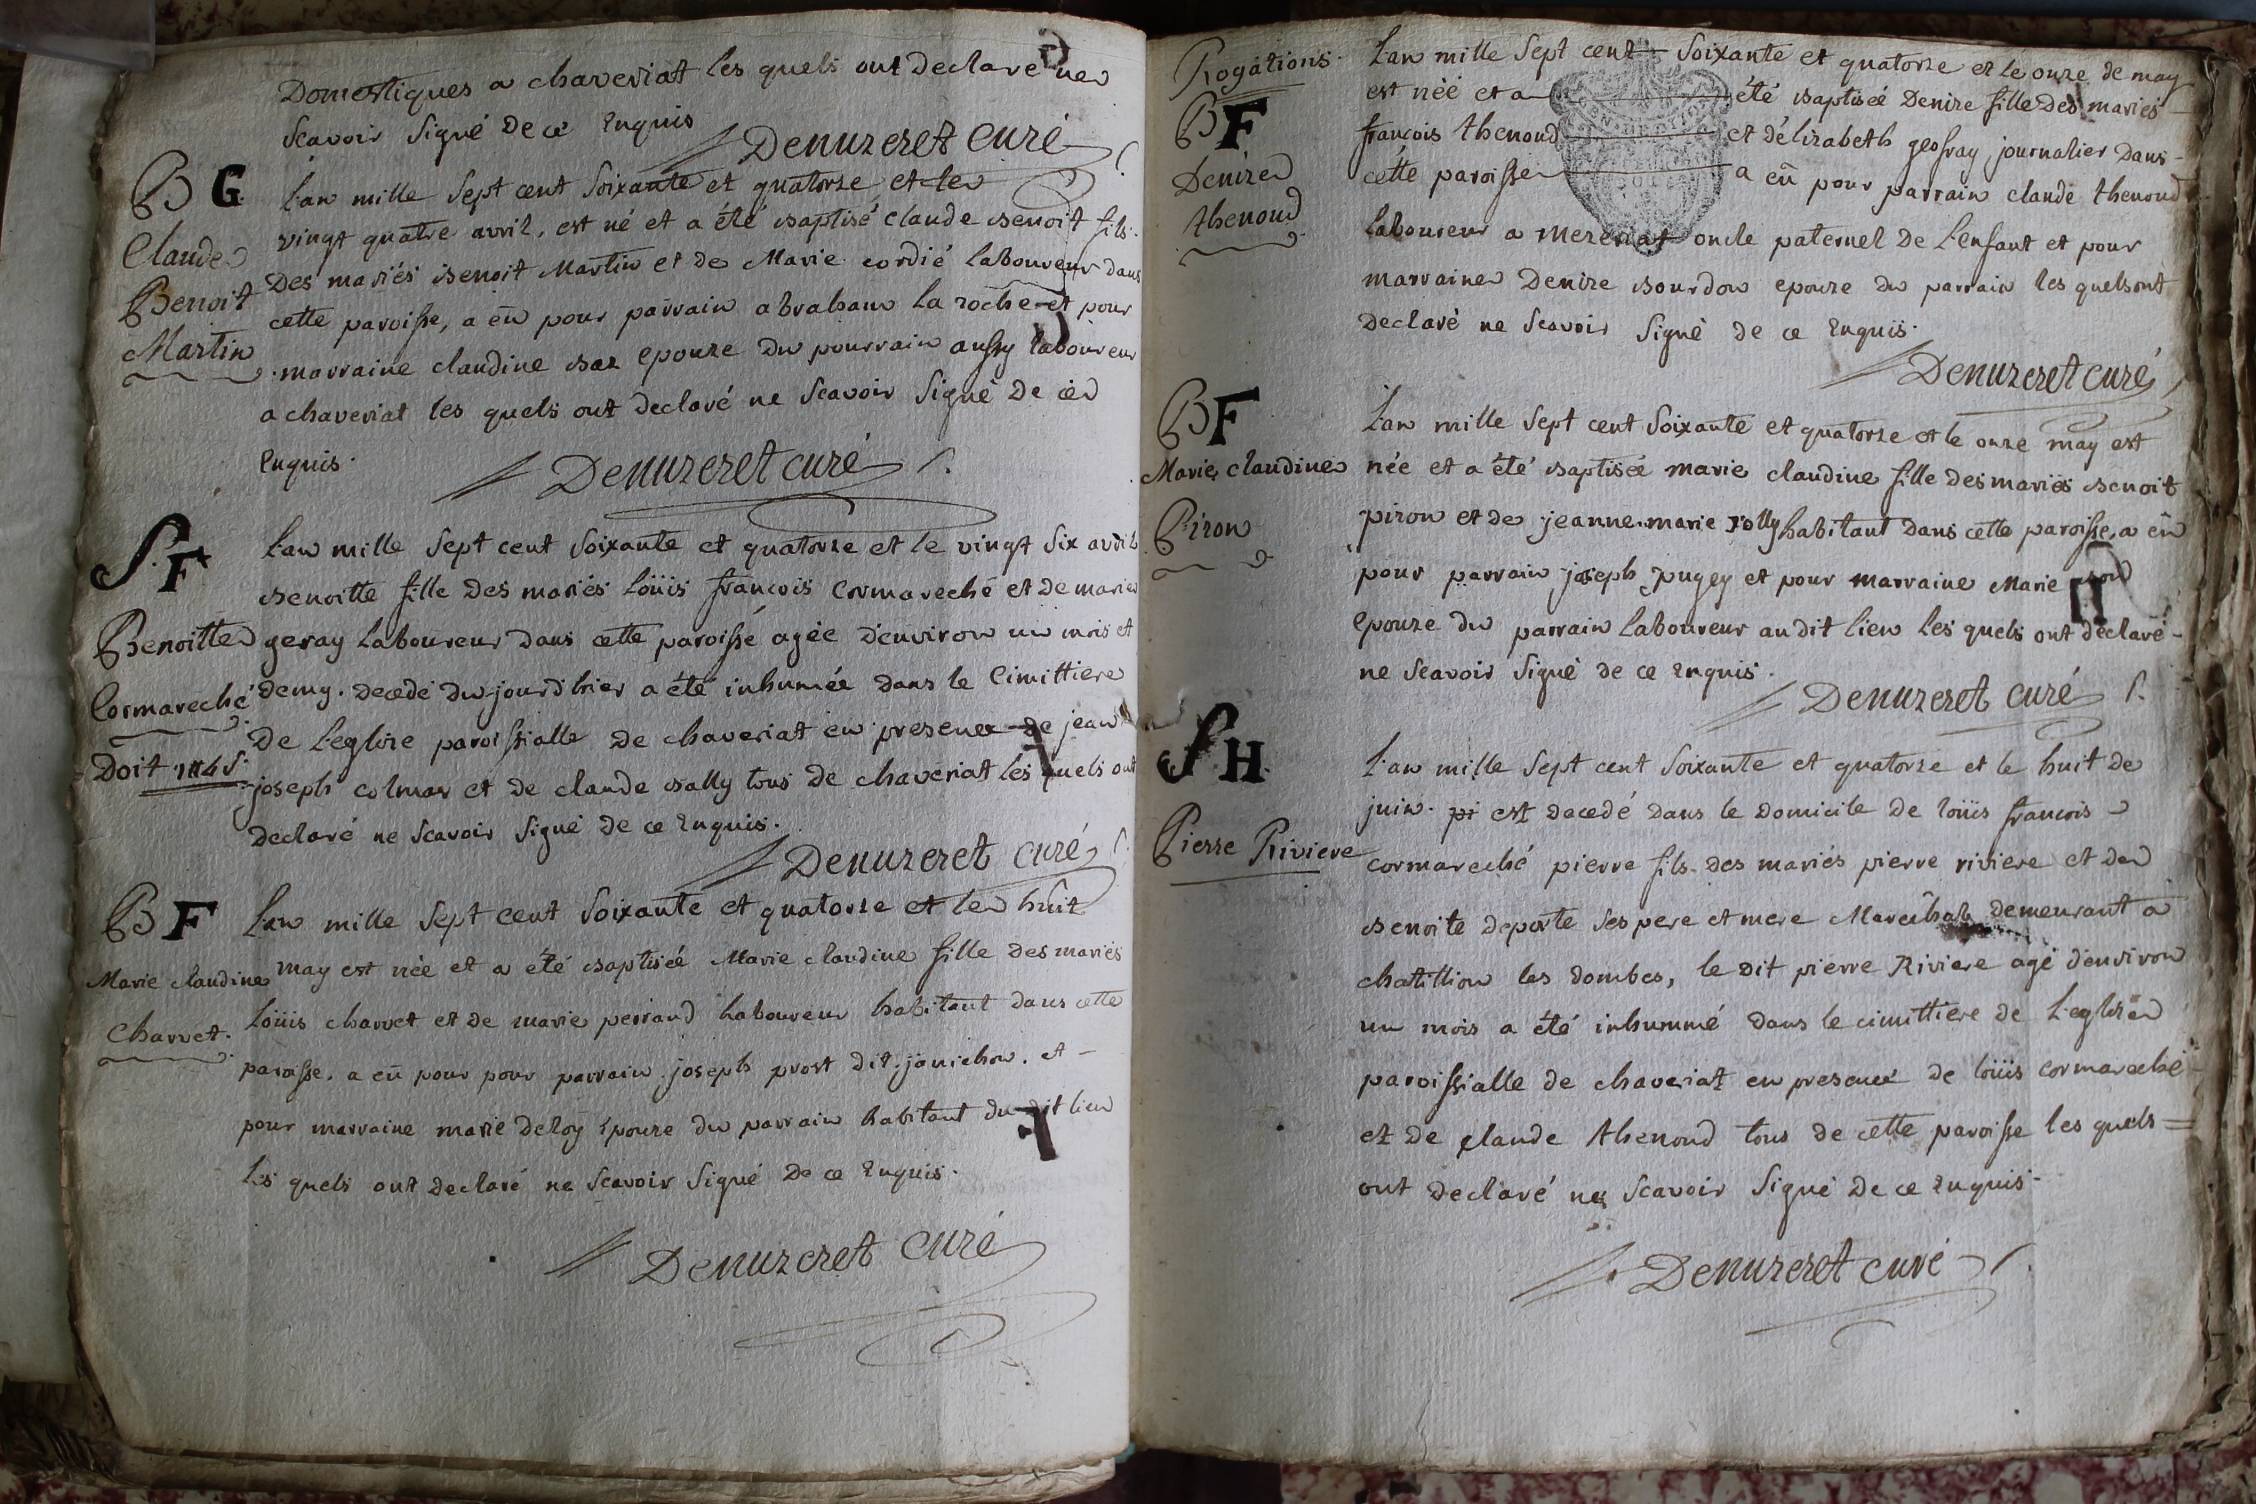 Domestiques a chaveriat les quels ont declaré ne
scavoir signé De ce Enquis
Denuzeret curé
B G
Claude
Benoit
Martin
L'an mille sept cent soixante et quatorze et le
vingt quatre avril, est né et a été baptisé claude benoit fils
Des mariés benoit Martin et de Marie cordié laboureur dans
cette paroisse, a eü pour parrain abraham la roche et pour
marraine claudine baz epouze du pourrain aussy laboureur
a chaveriat les quels ont declaré ne scavoir signé De ce
Enquis.
Denuzeret curé
S. F
Benoitte
Cormareché
Doit 114 s.
L'an mille sept cent soixante et quatorze et le vingt six avril
benoitte fille des mariés Loüis françois cormareché et de marie
geray laboureur dans cette paroisse agée d'environ un mois et
demy. decedé du jour d'hier a été inhumée dans le Cimittiere
De L'eglize paroissialle de chaveriat en presence de jean
joseph colmar et de claude bally tous de chaveriat les quels ont
declaré ne scavoir signé de ce Enquis.
Denuzeret curé
B F
Marie claudine
Charvet.
L'an mille sept cent soixante et quatorze et le huit
may est née et a été baptiséé Marie claudine fille des mariés
Loüis charvet et de marie perraud laboureur habitant dans cette
paroisse. a eü pour pour parrain joseph prost dit janichon. et
pour marraine marie deloy épouze du parrain habitant du dit lieu
les quels ont declaré ne scavoir signé De ce Enquis.
Denuzeret curé
Rogations.
B F
Denize
thenoud
L'an mille sept cent soixante et quatorze et le onze de may
est néé et a été baptiséé Denize fille des mariés
françois thenoud et d'élizabeth geofray journalier dans
cétte paroisse a eü pour parrain claude thenoud
laboureur a mezeriat oncle paternel de L'enfant et pour
marraine Denize bourdon epouze du parrain les quels ont
declaré ne scavoir signé de ce Enquis.
Denuzeret curé
B F
Marie claudine
Piron
L'an mille sept cent soixante et quatorze et le onze may est
née et a été baptiséé marie claudine fille des mariés benoit
piron et de jeanne marie jolly habitant dans cette paroisse, a eü
pour parrain joseph pugey et pour marraine Marie
epouze du parrain laboureur au dit lieu les quels ont declaré
ne scavoir signé de ce Enquis.
Denuzeret curé
S H
Pierre Riviere
L'an mille sept cent soixante et quatorze et le huit de
juin. pi est decedé dans le domicile de loüis francois
cormareché pierre fils des mariés pierre riviere et de
benoite deporte ses pere et mere Marechal demeurant a
chatillion les dombes, le dit pierre Riviere agé d'environ
un mois a été inhummé dans le cimittiere de L'eglize
paroissialle de chaveriat en presence de loüis cormareché
et de claude thenoud tous de cette paroisse les quels
ont declaré ne scavoir signé de ce Enquis.
Denuzeret curé